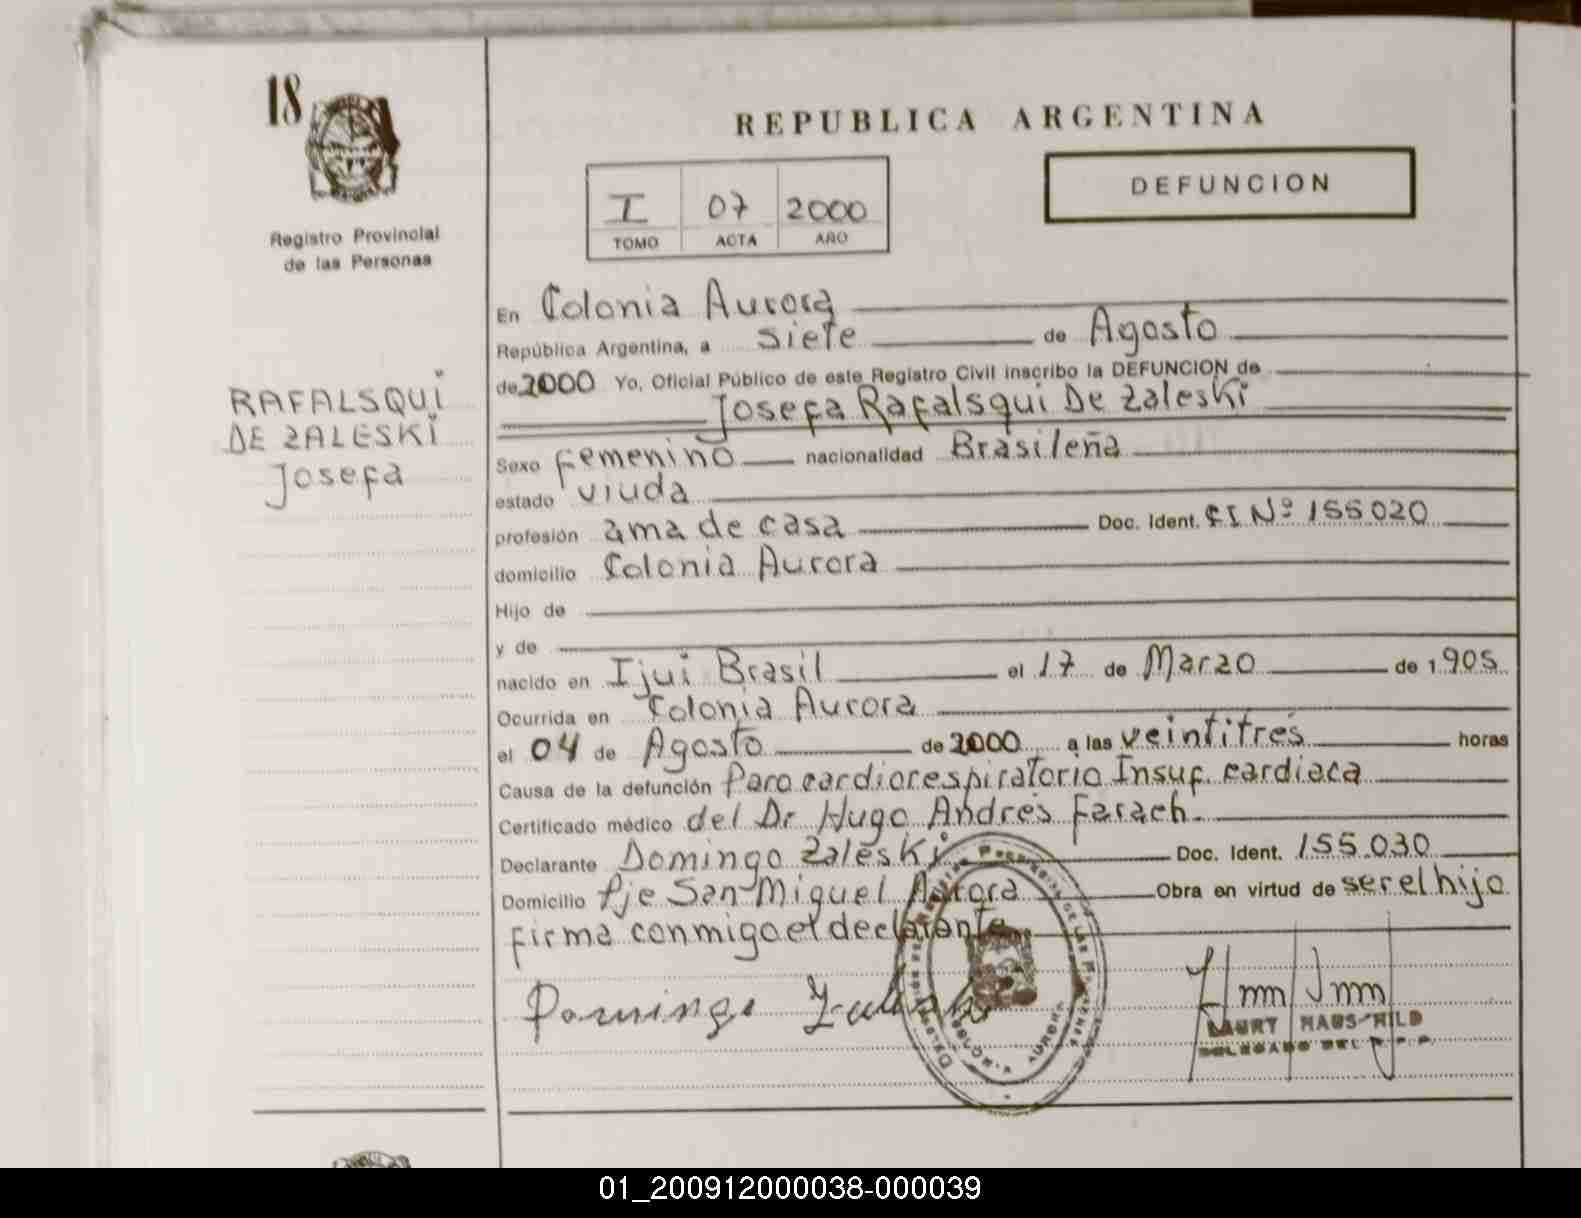 18
Registro Provincial
de las Personas
RAFALSQUI
DE ZALESKI
Josefa
REPUBLICA ARGENTINA
I 07 2000
TOMO ACTA AÑO
DEFUNCION
En Colonia Aurora
República Argentina, a siete de Agosto
de 2000 Yo, Oficial Público de este Registro Civil inscribo la DEFUNCION de
Josefa Rafalsqui De Zaleski
Sexo femenino nacionalidad Brasileña
estado viuda
profesión ama de casa Doc. Ident. CI Nº 155020
domicilio Colonia Aurora
Hijo de
y de
nacido en Ijui Brasil el 17 de Marzo de 1.905
Ocurrida en Colonia Aurora
el 04 de Agosto de 2000 a las veintitrés horas
Causa de la defunción Paro cardiorespiratorio Insuf. cardiaca
Certificado médico del Dr Hugo Andrés Farach
Declarante Domingo Zaleski Doc. Ident. 155.030
Domicilio Pje San Miguel Aurora Obra en virtud de ser el hijo
firma conmigo el declarante
Domingo Zaleski
DELEGADO DEL R.P.P.
01_200912000038-000039